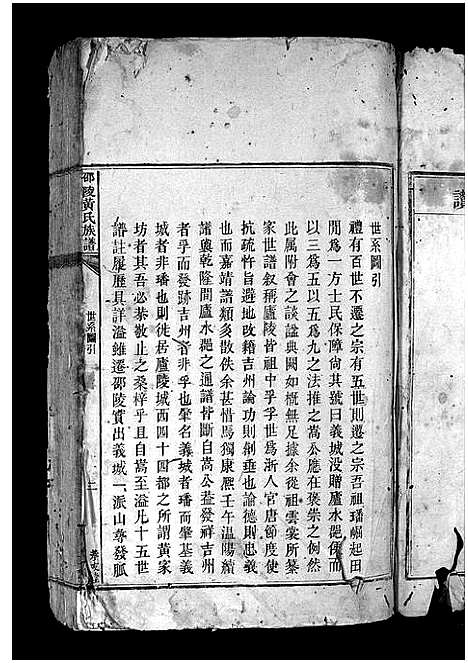 世系圖引
禮有百世不遷之宗有五世則遷之宗吾祖璠崛起田
閒爲一方士民保障倚其號曰義城没贈廬水郡侯而
以三爲五以五爲九之法推之嵩公應在褒崇之例然
此屬附會之談諡典闕如概無足據余從祖雲裳所纂
家世譜叙稱廬陵皆祖中孚孚世爲浙人官唐節度使
抗疏忤旨避地改籍吉州論功則制垂也論德則忠狀
也而嘉靖譜類多散佚余甚惜焉獨康熙壬午温陽續
譜與乾隆間廬水郡之通譜皆斷自嵩公葢發祥吉州
者孚而發跡吉州者非孚也肇名義城者璠而肇基義
城者非璠也則徙居廬陵城西四十四都之所謂黄家
坊者其吾必恭敬止之桑梓乎且自嵩至溢凡十五世
譜註履歷具詳溢雖遷邵陵實出義城一派山尊發脈
邵陵黄氏族譜
世系圖引